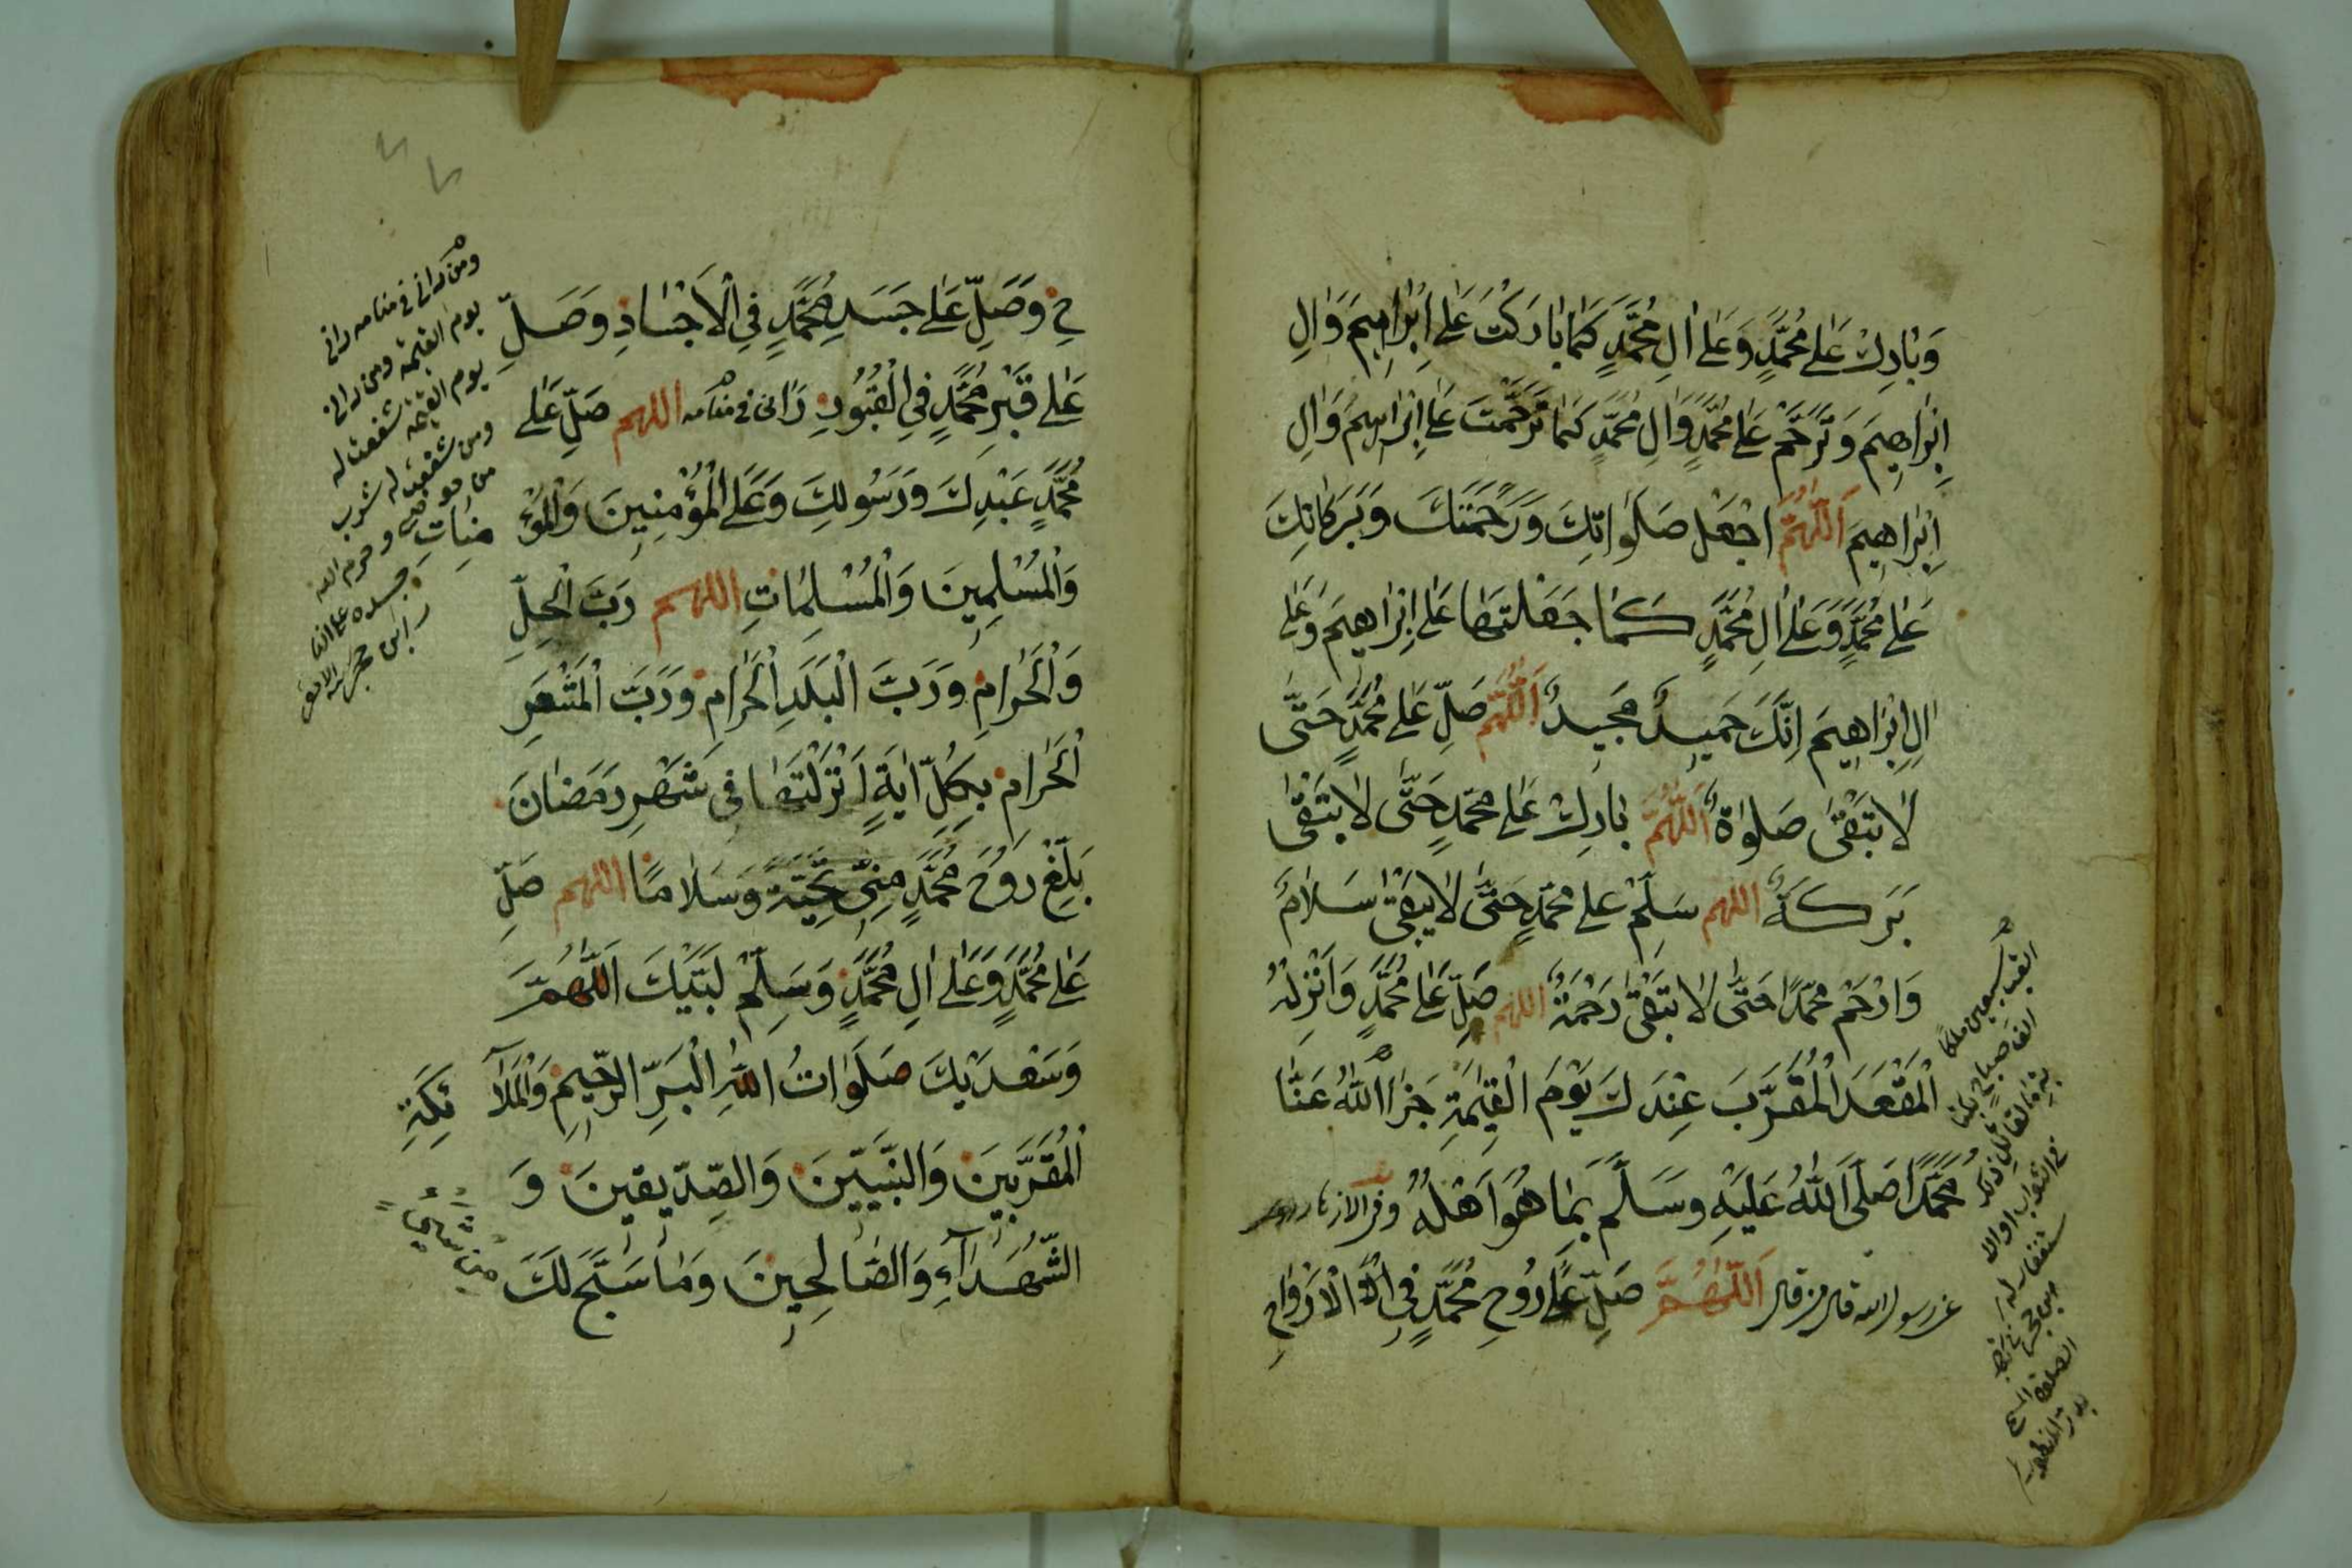 وَبَارِكْ عَلَى مُحَمَّدٍ وَعَلَى اٰلِ مُحَمَّدٍ كَمَا بَارَكْتَ عَلَى اِبْرَاهِيمَ وَاٰلِ
اِبْرَاهِيمَ وَتَرَحَّمْ عَلَى مُحَمَّدٍ وَاٰلِ مُحَمَّدٍ كَمَا تَرَحَّمْتَ عَلَى اِبْرَاهِيمَ وَاٰلِ
اِبْرَاهِيمَ اَللّٰهُمَّ اجْعَلْ صَلَوَاتِكَ وَرَحْمَتَكَ وَبَرَكَاتِكَ
عَلَى مُحَمَّدٍ وَعَلَى اٰلِ مُحَمَّدٍ كَمَا جَعَلْتَهَا عَلَى اِبْرَاهِيمَ وَعَلَى
اٰلِ اِبْرَاهِيمَ اِنَّكَ حَمِيدٌ مَجِيدٌ اَللّٰهُمَّ صَلِّ عَلَى مُحَمَّدٍ حَتَّى
لَا تَبْقَى صَلٰوةٌ اَللّٰهُمَّ بَارِكْ عَلَى مُحَمَّدٍ حَتَّى لَا تَبْقَى
بَرَكَةٌ اللهم سَلِّمْ على مُحَمَّدٍ حَتَّى لَا يَبْقَى سَلَامٌ
وَارْحَمْ مُحَمَّدًا حَتَّى لَا تَبْقَى رَحْمَةٌ اللهم صَلِّ عَلَى مُحَمَّدٍ وَاَنْزِلْهُ
الْمَقْعَدَ الْمُقَرَّبَ عِنْدَكَ يَوْمَ الْقِيٰمَةِ جَزَا اللّٰهُ عَنَّا
مُحَمَّدًا صَلَّى اللّٰهُ عَلَيْهِ وَسَلَّمَ بِمَا هُوَ اَهْلُهُ
عن رسول الله قال من قال اَللّٰهُمَّ صَلِّ عَلَى رُوحِ مُحَمَّدٍ فِي الْاَرْوَاحِ
اتعب سبعين ملكا
الف صباح
وَصَلِّ عَلَى جَسَدِ مُحَمَّدٍ فِي الْاَجْسَادِ وَصَلِّ
عَلَى قَبْرِ مُحَمَّدٍ فِي الْقُبُورِ رَانى فى منامه اللهم صَلِّ عَلَى
مُحَمَّدٍ عَبْدِكَ وَرَسُولِكَ وَعَلَى الْمُؤْمِنِينَ وَالْمُؤْ
مِنَاتِ
وَالْمُسْلِمِينَ وَالْمُسْلِمَاتِ اللهم رَبَّ الْحِلِّ
وَالْحَرَامِ وَرَبَّ الْبَلَدِ الْحَرَامِ وَرَبَّ الْمَشْعَرِ
الْحَرَامِ بِكُلِّ اٰيَةٍ اَنْزَلْتَهَا فِي شَهْرِ رَمَضَانَ
بَلِّغْ رُوحَ مُحَمَّدٍ مِنِّي تَحِيَّةً وَسَلَامًا اللهم صَلِّ
عَلَى مُحَمَّدٍ وَعَلَى اٰلِ مُحَمَّدٍ وَسَلِّمْ لَبَّيْكَ اَللّٰهُمَّ
وَسَعْدَيْكَ صَلَوَاتُ اللّٰهِ الْبَرِّ الرَّحِيمِ وَالْمَلٰٓا ئِكَةِ
الْمُقَرَّبِينَ وَالنَّبِيِّينَ وَالصِّدِّيقِينَ وَ
الشُّهَدَآءِ وَالصَّالِحِينَ وَمَا سَبَّحَ لَكَ
مِنْ شَيْءٍ
ومن رانى فى منامه رانى
يوم القيمة ومن رانى
يوم القيمة شفعت له
ومن شفعت له شرب
من حوضى وحرم الله
جسده على النار
ابن حجر